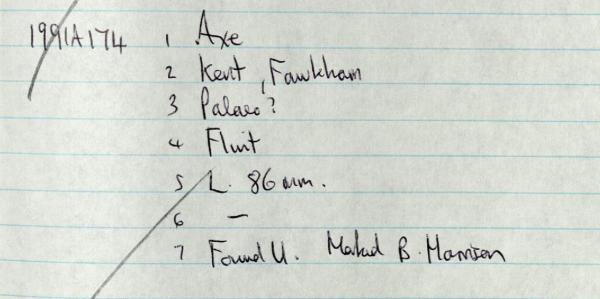 1991A174 1 Axe
2 Kent, Fawkham
3 Palaeo?
4 Flint
5 L. 86 mm.
6 —
7 Found U. Marked B. Harrison